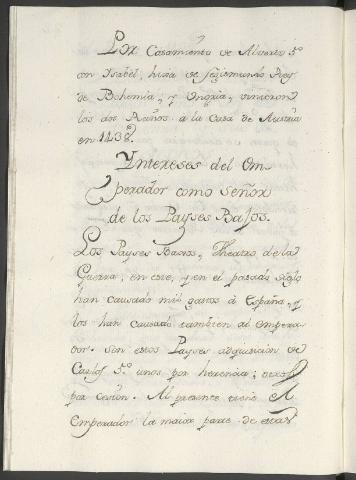 Por Casamiento de Alverto 5º
con Isabel, hixa de Segismundo Rey
de Bohemia, y Ungria, vinieron
los dos Rainos à la Casa de Austria
en 1438.
Yntereses del Om-
perador como Señor
de los Payses Bajos.
Los Payses Baxos, Theatro de la
Guerra, en este, y en el pasado siglo
han causado mil gastos à España, y
los han causado tambien al Empera-
dor. Son estos Payses adquisicion de
Carlos 5º unos por herencia, otros
por Cesion. Al presente tiene el
Emperador la maior parte de estas